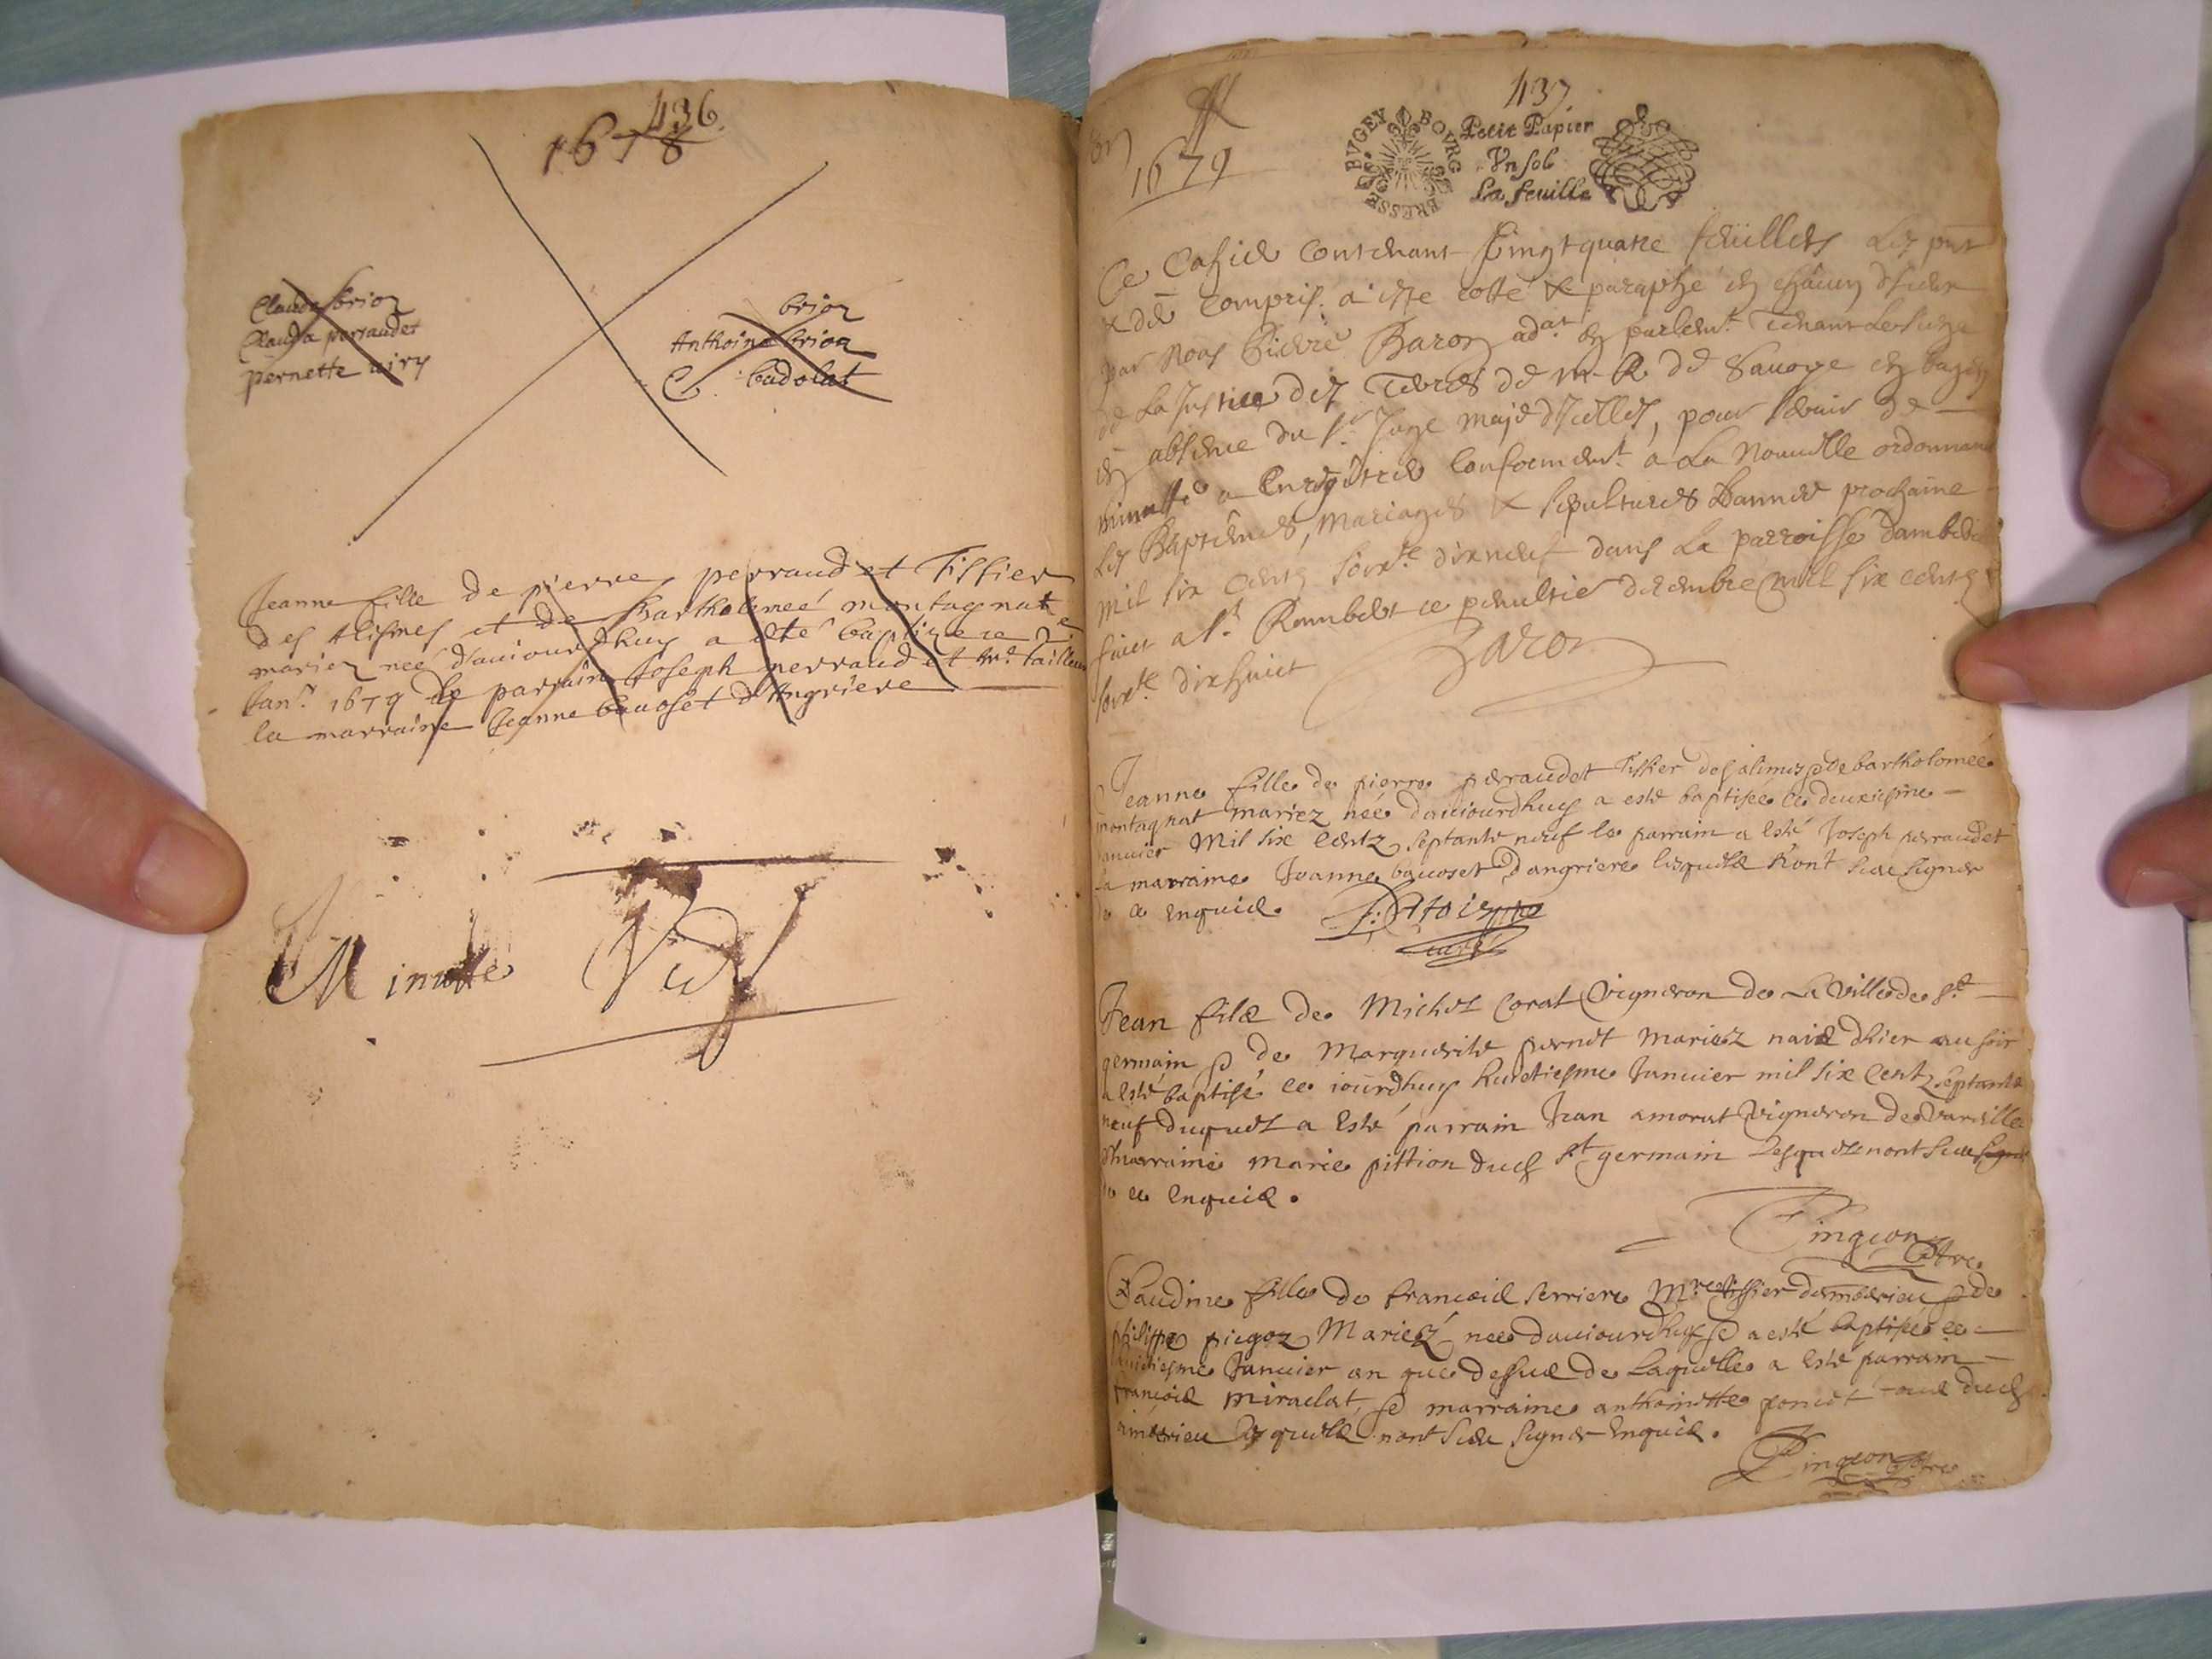 436
1678
Claude brion
Clauda perraudet
pernette
brion
Anthoine brion
C. Cadolat
Jeanne fille de pierre perraud et Tissier
des Alismes et de Bartholomeé montagnat
mariez neé d'auiourdhuy a eté baptizee ce 2e
Jan.r 1679 le parrain Joseph perraud et
la marraine Jeanne bauoset d'Angriere
Minutte
437
1679
BVGEY BOVRG BRESSE
Petit Papier
Vn sol
La feuille
Ce Cahier Contenant Vingt quatre feüillets Les pnt
& der compris a este cotté & paraphé en chacun d'iceux
par Nous Pierre Baron adat en parlemt. Tenant Le siege
de La Justice des Terres de M. R. de Sauoye en bugey
en absence du Sr. Juge maje d'Icelles, pour seruir de
minutte a Enregistrer Conformemt. a La Nouuelle ordonnance
Les Baptemes, Mariages & sepultures L'annee prochaine
Mil six Cents soixte. dixneuf dans La parroisse
fait a St. Rambert ce penultie decembre mil six cents
soixte. dixhuict
Baron
Jeanne fille de pierre perraudet Tissier des alimes & de bartholomeé
montagnat mariez neé dauiourdhuy a esté baptisée ce deuxiesme
Januier Mil six Centz septante neuf le parrain a Esté Joseph perraudet
la marraine Jeanne bauoset d'angriere lesquels n'ont sceu signer
de ce enquis.
curé
Jean fils de Michel Corat Vigneron de La Ville de St
germain & de Marguerite pernet Mariez naiz dhier au soir
a esté baptisé ce iourdhuy huictiesme Januier mil six Centz septante
neuf duquel a Esté parrain Jean amorat Vigneron de Vareille
& marraine marie pittion dud St germain Lesquels nont sceu signer
de ce Enquis.
Pingeon
Ptre
Claudine fille de francois serriere Mre Tissier & de
philippe piegoz Mariez neé dauiourdhuy & a esté baptisée ce
huictiesme Januier an que dessus de Laquelle a Esté parrain
francois miraclat & marraine anthoinette poncet tous dud
amberieu Lesquels nont sceu signer Enquis.
Pingeon Ptre